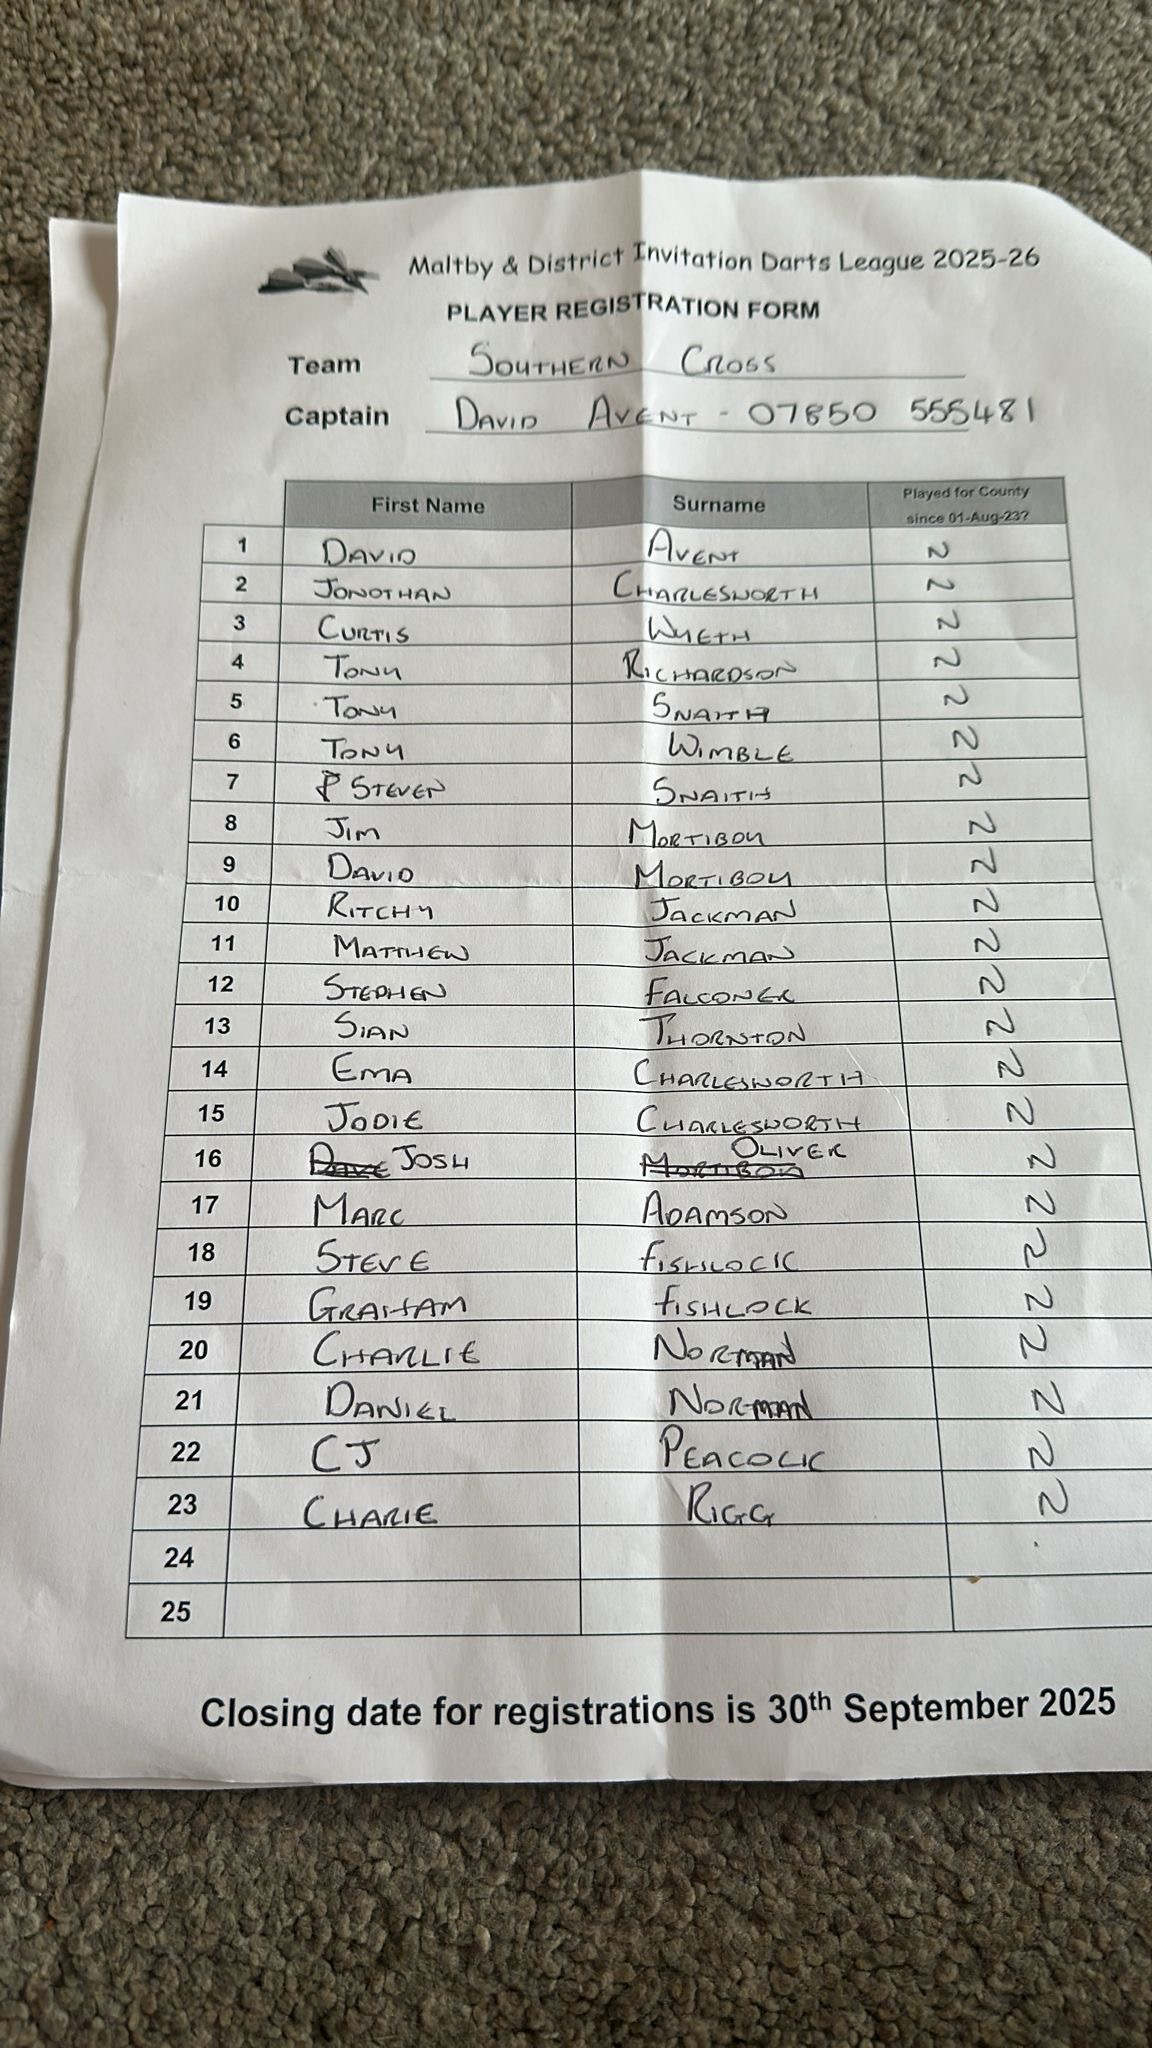 Maltby & District Invitation Darts League 2025-26
PLAYER REGISTRATION FORM
Team SOUTHERN CROSS
Captain DAVID AVENT - 07850 555481
First Name Surname Played for County since 01-Aug-23?
1 DAVID AVENT N
2 JONOTHAN CHARLESWORTH N
3 CURTIS WYETH N
4 TONY RICHARDSON N
5 TONY SNAITH N
6 TONY WIMBLE N
7 STEVEN SNAITH N
8 JIM MORTIBOY N
9 DAVID MORTIBOY N
10 RITCHY JACKMAN N
11 MATTHEW JACKMAN N
12 STEPHEN FALCONER N
13 SIAN THORNTON N
14 EMA CHARLESWORTH N
15 JODIE CHARLESWORTH N
16 DAVE JOSH MORTIBOY OLIVER N
17 MARC ADAMSON N
18 STEVE FISHLOCK N
19 GRAHAM FISHLOCK N
20 CHARLIE NORMAN N
21 DANIEL NORMAN N
22 CJ PEACOCK N
23 CHARIE RIGG N
24
25
Closing date for registrations is 30th September 2025